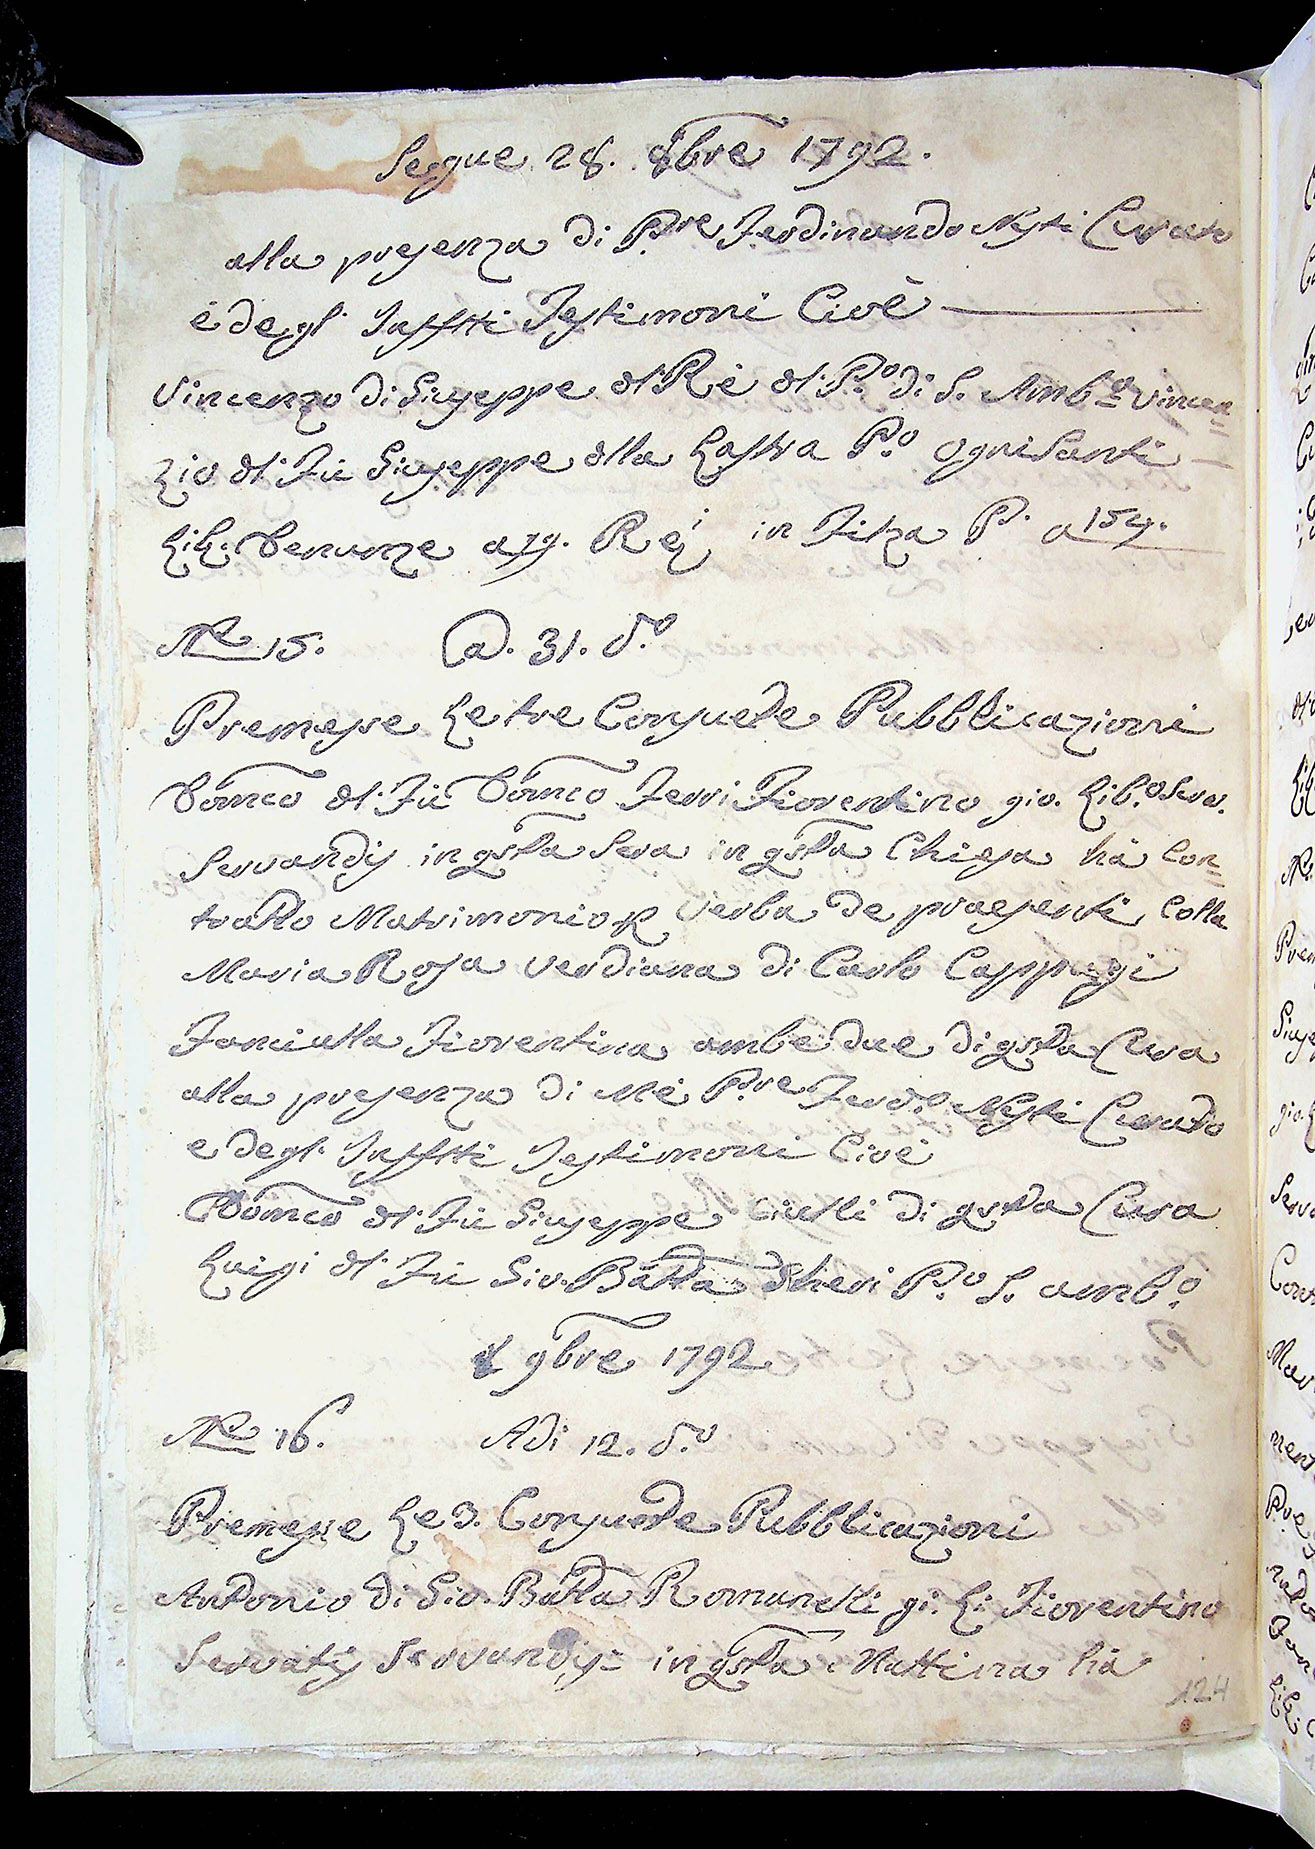 Segue 28. 8bre 1792.
alla presenza di Pre Ferdinando Nesti Curato
è degl' Infstti Testimoni Cioè
Vincenzo di Giuseppe dl Rè dl P.o di S. Amb.o Vincen=
zio dl Fù Giuseppe dlla Lastra P.o Ognisanti
Lib. Denunze a 79. Rei in Filza P. a 154.
No 15. A. 31. d.o
Premesse Le tre Consuete Pubblicazioni
Domco dl Fù Domco Ferri Fiorentino gio. Lib.o Serva.
Servandis in qsta Sera in qsta Chiesa hà Con=
tratto Matrimonio p verba de praesenti Colla
Maria Rosa Verdiana di Carlo Cappugi
Fanciulla Fiorentina ambe due di qsta Cura
alla presenza di Mè Pre Ferd.o Nesti Curato
e degl' Infstti Testimoni Cioè
Domco dl Fù Giuseppe Ciulli di qsta Cura
Luigi dl Fù Gio. Batta P.o S. Amb.o
9bre 1792
No 16. Adi 12. d.o
Premesse Le 3. Consuete Pubblicazioni
Antonio di Gio. Batta Romanelli gi. Li. Fiorentino
Servatis Servandis = in qsta Mattina hà
124